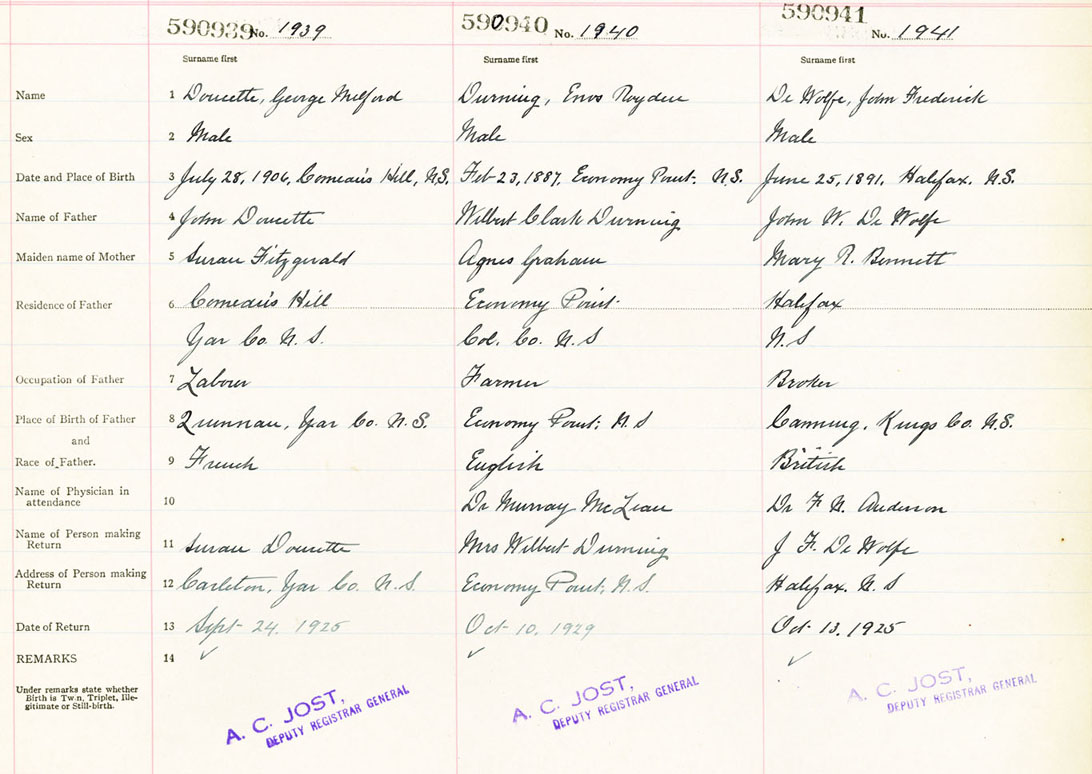 590939 No. 1939 590940 No. 1940 590941 No. 1941
Surname first Surname first Surname first
Name 1 Doucette, George Milford Durning, Enos Royden De Wolfe, John Frederick
Sex 2 Male Male Male
Date and Place of Birth 3 July 28, 1906, Comeau's Hill, N.S. Feb 23, 1887, Economy Point, N.S. June 25, 1891, Halifax, N.S.
Name of Father 4 John Doucette Wilbert Clark Durning John W. De Wolfe
Maiden name of Mother 5 Susan Fitzgerald Agnes Graham Mary R. Bennett
Residence of Father 6 Comeau's Hill Economy Point Halifax
Yar Co. N.S. Col. Co. N.S N.S
Occupation of Father 7 Labour Farmer Broker
Place of Birth of Father 8 Quinnan, Yar Co. N.S. Economy Point, N.S Canning, Kings Co. N.S.
and
Race of Father. 9 French English British
Name of Physician in
attendance 10 Dr Murray McLean Dr F N. Anderson
Name of Person making
Return 11 Susan Doucette Mrs Wilbert Durning J F. De Wolfe
Address of Person making
Return 12 Carleton, Yar Co. N.S. Economy Point, N.S. Halifax, N.S
Date of Return 13 Sept 24, 1925 Oct 10, 1929 Oct 13, 1925
REMARKS 14 ✓ ✓ ✓
Under remarks state whether
Birth is Twin, Triplet, Ille-
gitimate or Still-birth.
A. C. JOST, A. C. JOST, A. C. JOST,
DEPUTY REGISTRAR GENERAL DEPUTY REGISTRAR GENERAL DEPUTY REGISTRAR GENERAL